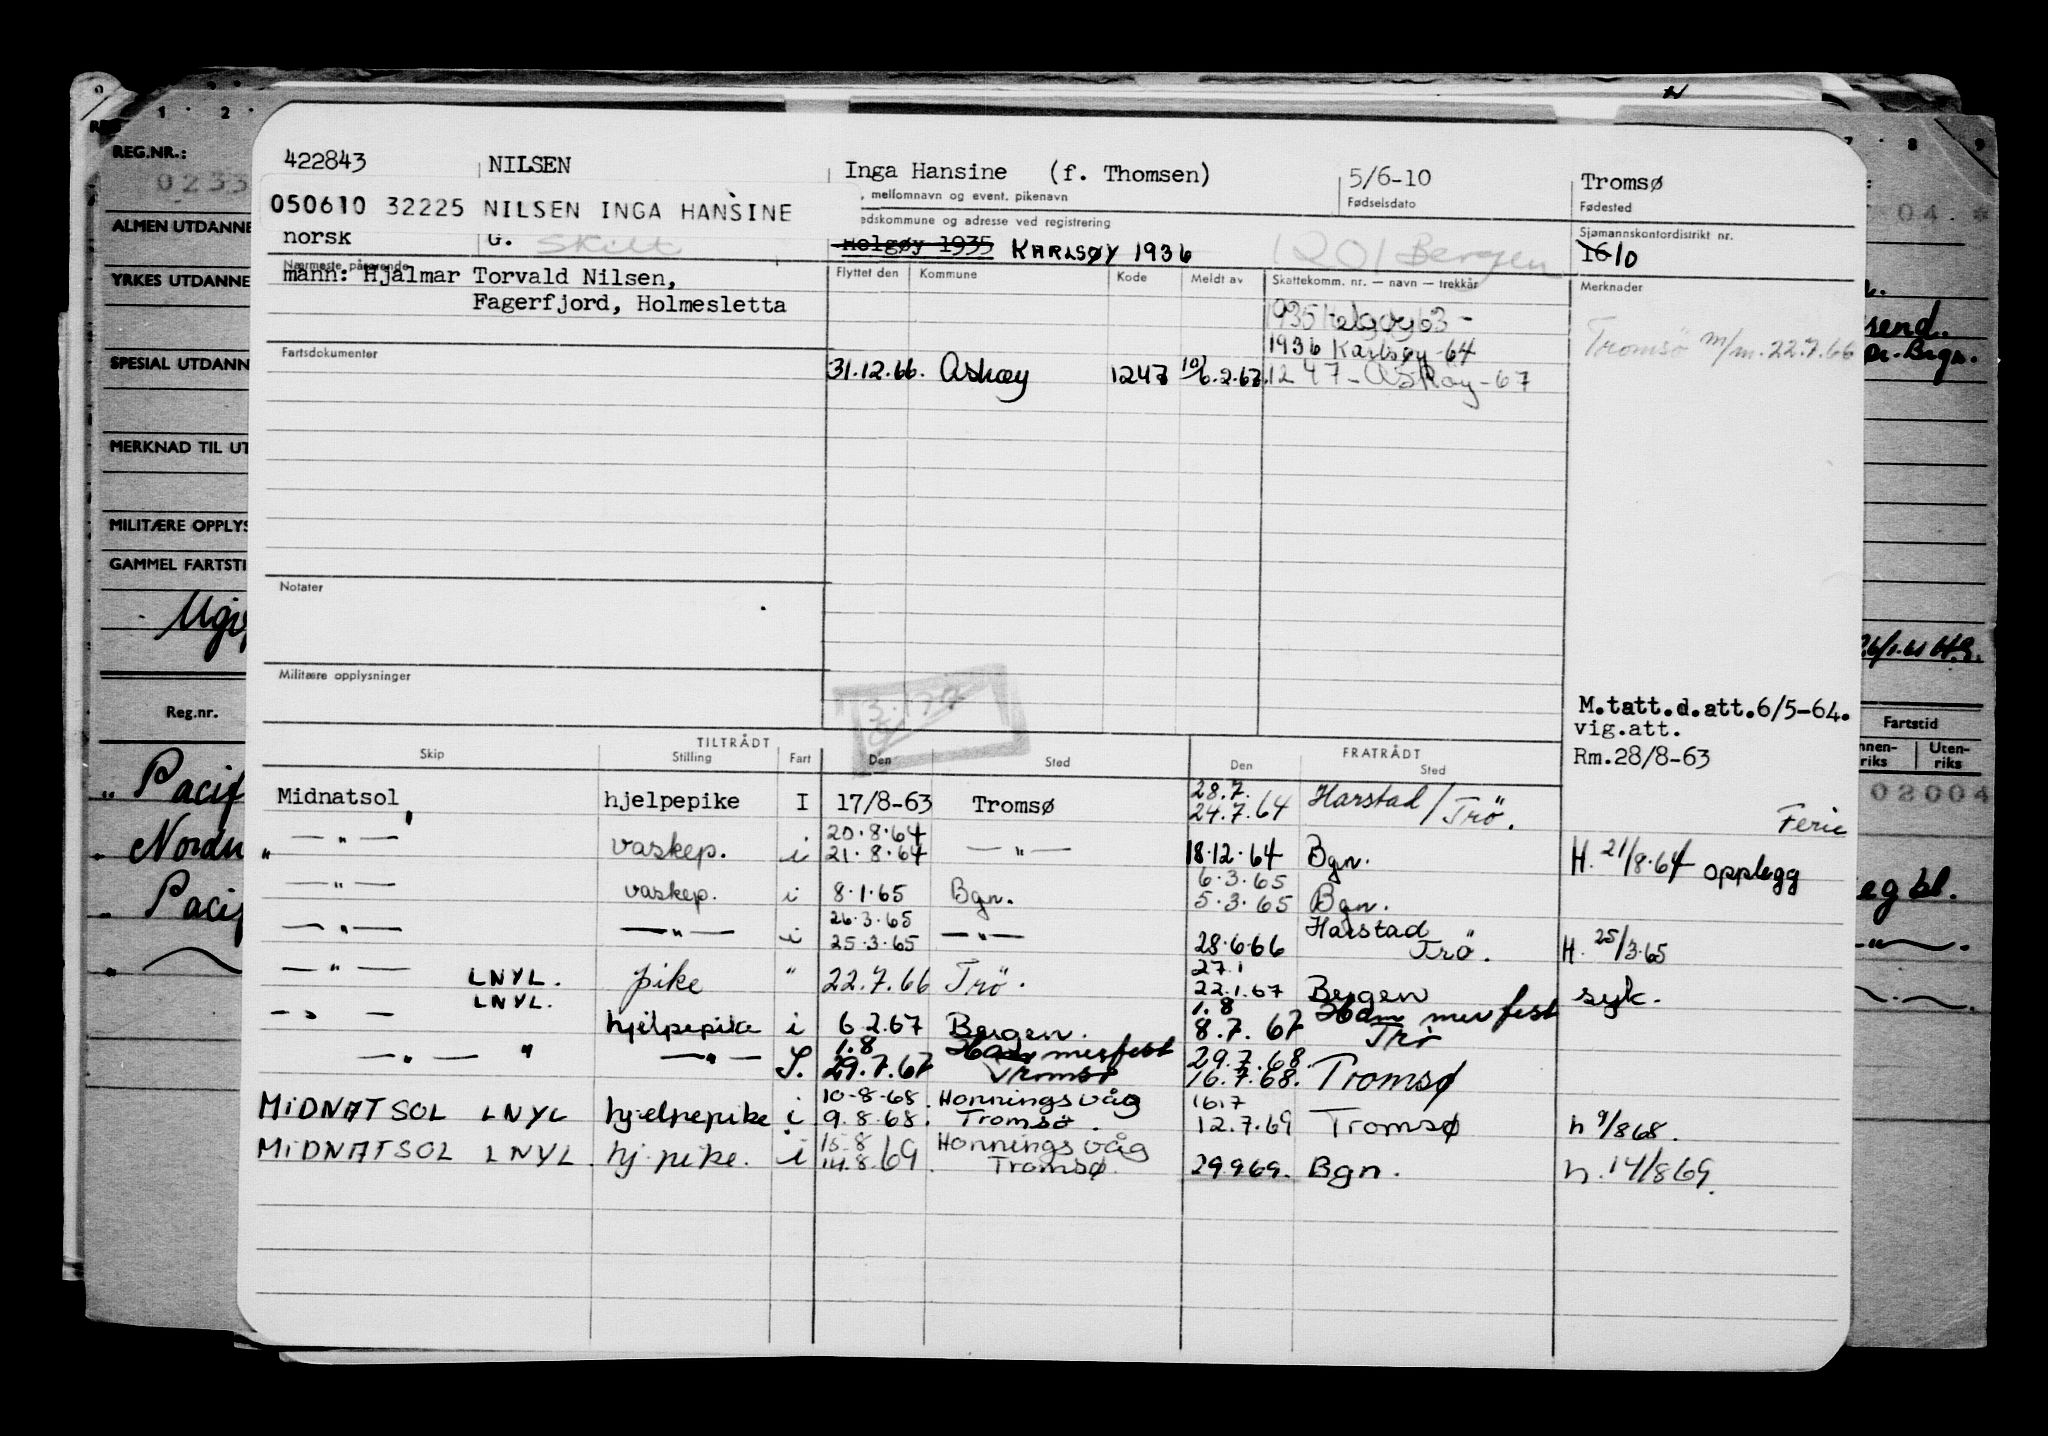 REG.NR.:
0233
ALMEN UTDANNE
YRKES UTDANNE
SPESIAL UTDANN
MERKNAD TIL UT
MILITÆRE OPPLYS
GAMMEL FARTSTI
Reg.nr.
Pacif
Nordn
Pacif
422843 NILSEN Inga Hansine (f. Thomsen) 5/6-10 Tromsø
, mellomnavn og event. pikenavn Fødselsdato Fødested
050610 32225 NILSEN INGA HANSINE
edskommune og adresse ved registrering Sjømannskontordistrikt nr.
norsk G. Skilt Helgøy 1935 KARLSØY 1936 1201 Bergen 16 10
Nærmeste pårørende Flyttet den Kommune Kode Meldt av Skattekomm. nr. — navn — trekkår Merknader
mann: Hjalmar Torvald Nilsen,
Fagerfjord, Holmesletta
1935 Helgøy 63 -
1936 Karlsøy -64 Tromsö m/m. 22.7.66
Fartsdokumenter
31.12.66. Askøy 1247 10/6.2.67. 1247 - Askøy - 67
Notater
Militære opplysninger
M.tatt.d.att.6/5-64.
vig.att.
Rm.28/8-63
TILTRÅDT FRATRÅDT
Skip Stilling Fart Den Sted Den Sted
Midnatsol hjelpepike I 17/8-63 Tromsø 28.7. 24.7.64 Harstad / Trö. Ferie
— " — vaskep. i 20.8.64 21.8.64 — " — 18.12.64 Bgn. H. 21/8.64 opplegg
— " — vaskep. i 8.1.65 Bgn. 6.3.65 5.3.65 Bgn.
— " — — " — i 26.3.65 25.3.65 — " — 28.6.66 Harstad Trö. H. 25/3.65
— " — LNYL. pike " 22.7.66 Trö. 27.1 22.1.67 Bergen syk.
— " — LNYL. hjelpepike i 6.2.67 Bergen. 1.8 8.7.67 Hammerfest Trö
— " — " — " — S. 1.8 29.7.67 Hammerfest Tromsø 29.7.68. 16.7.68. Tromsø
MIDNATSOL LNYL hjelpepike i 10-8-68. 9.8.68. Honningsvåg Tromsö. 16.7 12.7.69 Tromsø h 9/868.
MIDNATSOL LNYL. hj.pike. i 15.8 14.8.69. Honningsvåg Tromsø. 29.9.69. Bgn. h. 14/869.
04. *
send.
Brgn.
Fartstid
nnen-
riks
Uten-
riks
02004
eg bl.